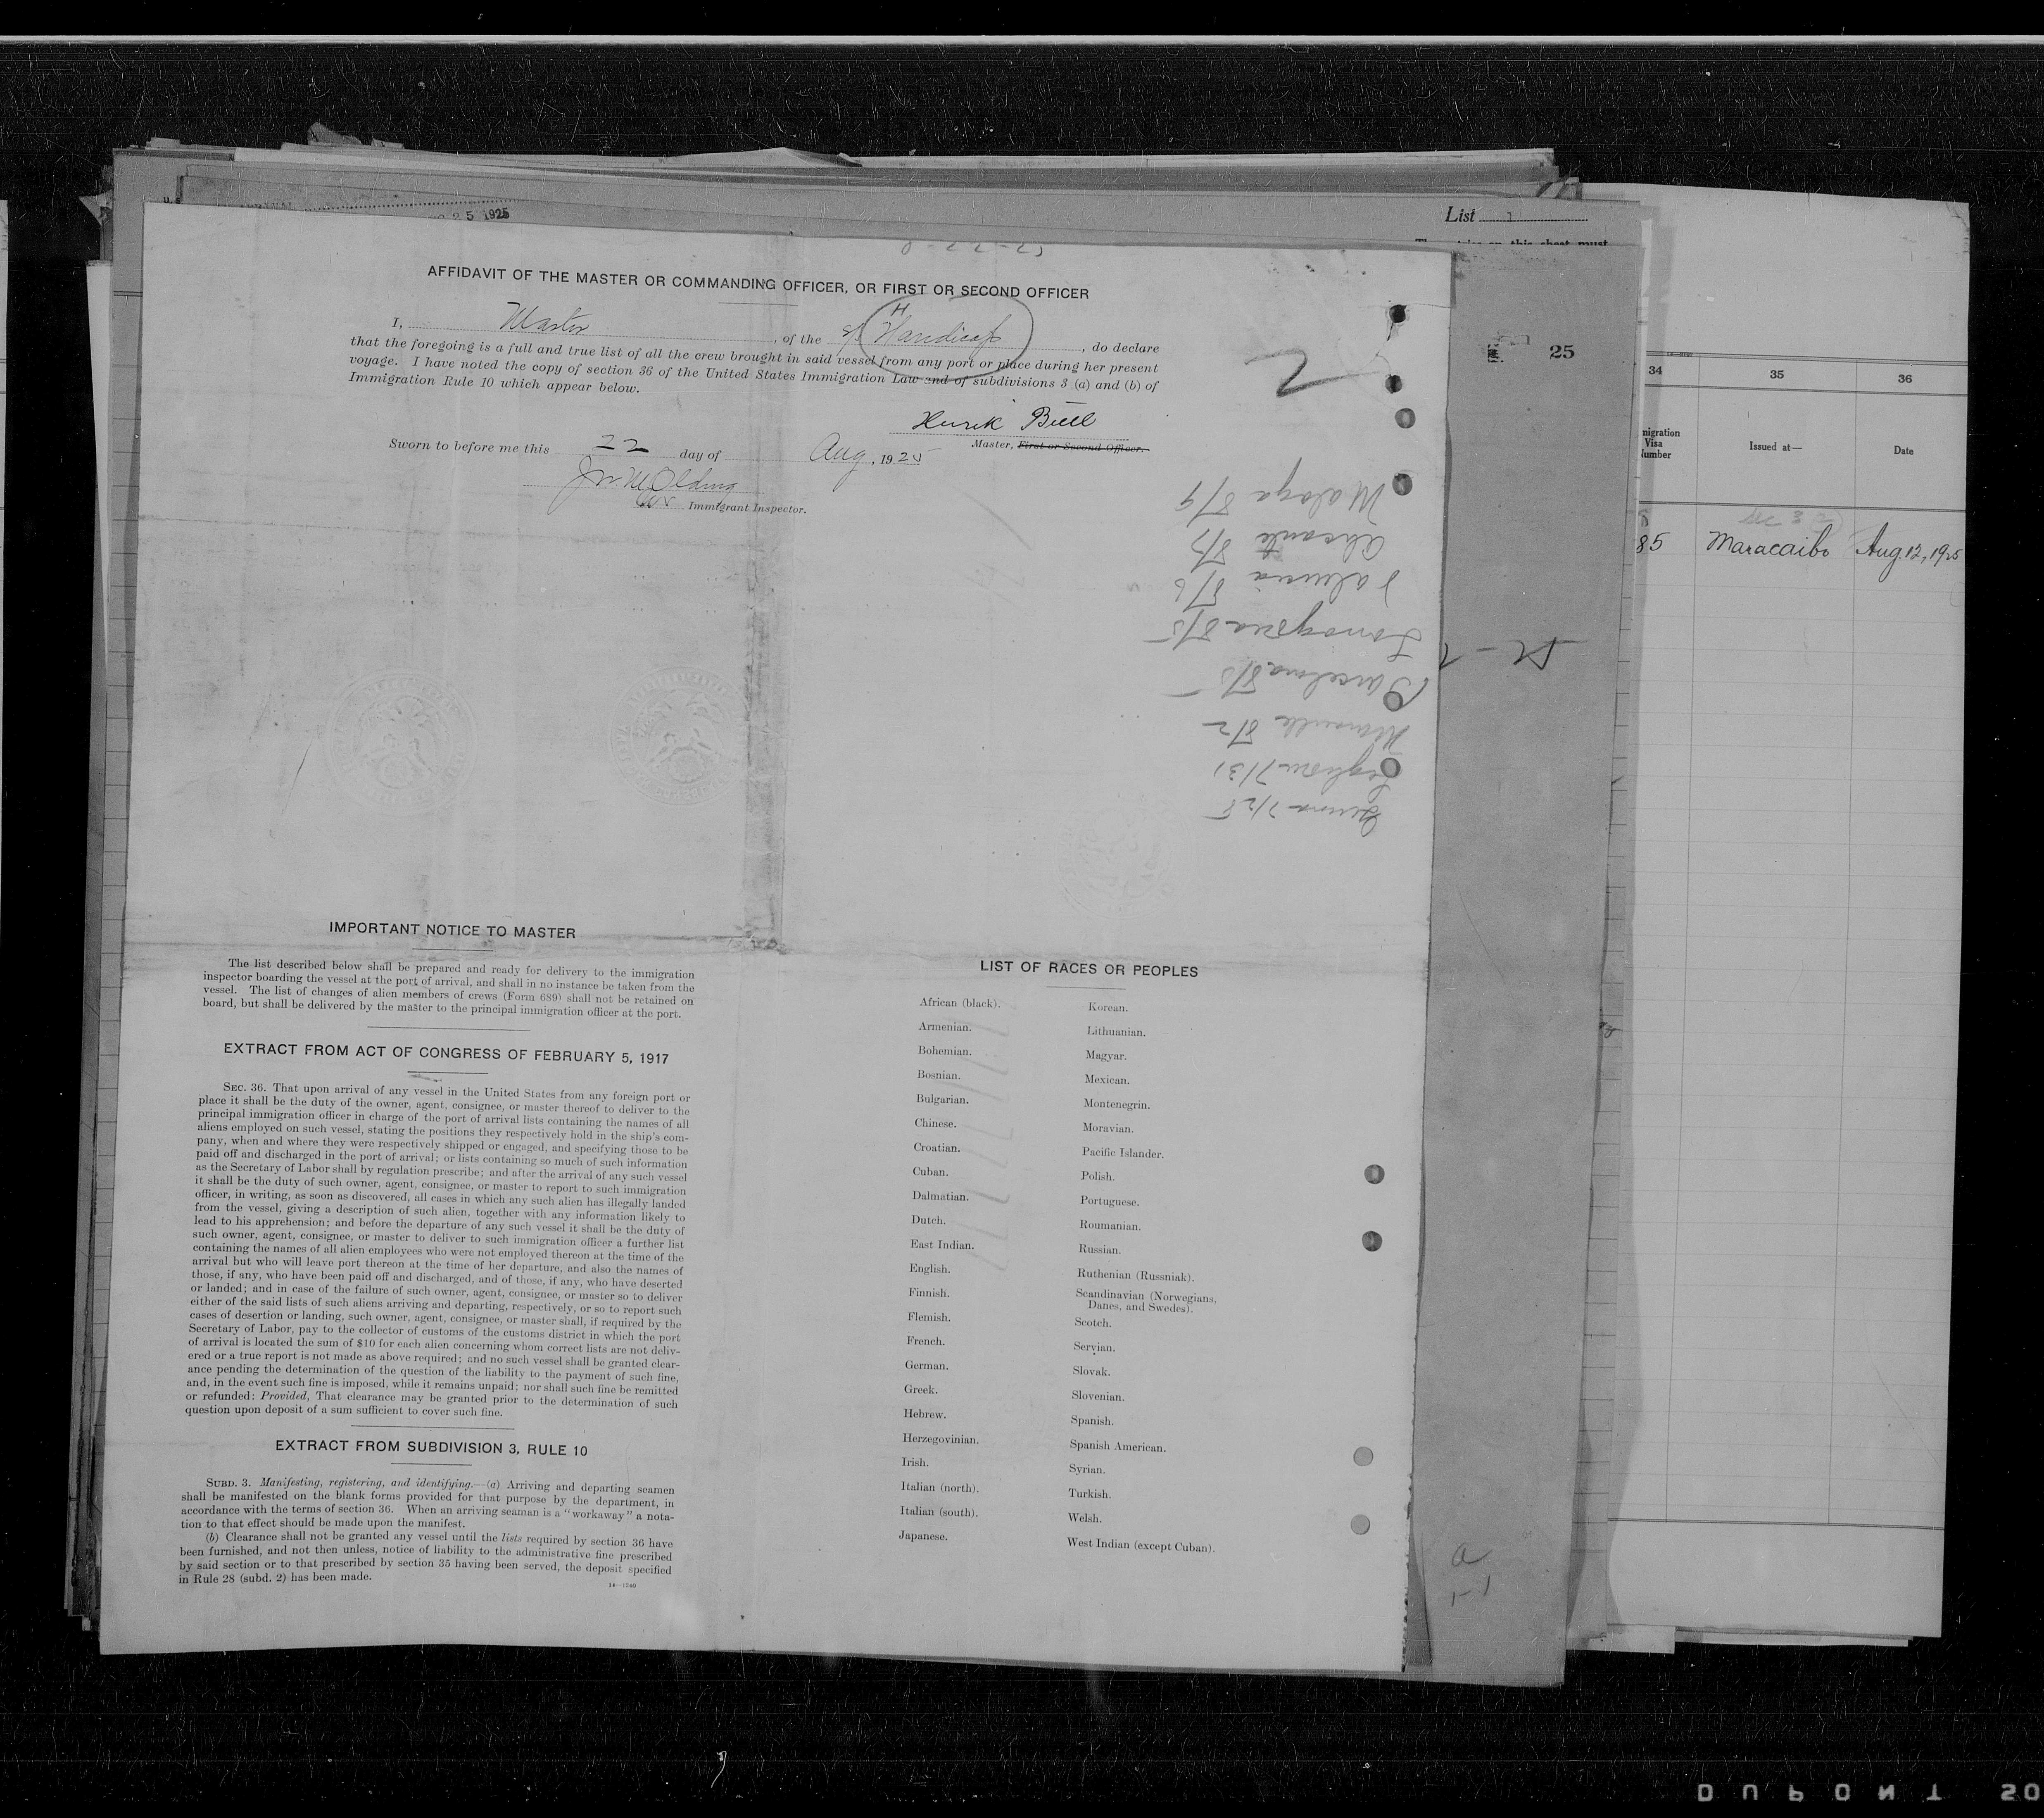 5 1925
List 1
AFFIDAVIT OF THE MASTER OR COMMANDING OFFICER, OR FIRST OR SECOND OFFICER
I, Master, of the H Handicap, do declare
that the foregoing is a full and true list of all the crew brought in said vessel from any port or place during her present
voyage. I have noted the copy of section 36 of the United States Immigration Law and of subdivisions 3 (a) and (b) of
Immigration Rule 10 which appear below.
2
Sworn to before me this 22 day of Aug, 1925
Master, First or Second Officer.
Immigrant Inspector.
Malaga 8/9
Alicante 8/7
8/6
8/5
Barcelona 8/5
Marseille 8/2
Leghorn 7/31
Genoa 7/28
IMPORTANT NOTICE TO MASTER
The list described below shall be prepared and ready for delivery to the immigration
inspector boarding the vessel at the port of arrival, and shall in no instance be taken from the
vessel. The list of changes of alien members of crews (Form 689) shall not be retained on
board, but shall be delivered by the master to the principal immigration officer at the port.
EXTRACT FROM ACT OF CONGRESS OF FEBRUARY 5, 1917
SEC. 36. That upon arrival of any vessel in the United States from any foreign port or
place it shall be the duty of the owner, agent, consignee, or master thereof to deliver to the
principal immigration officer in charge of the port of arrival lists containing the names of all
aliens employed on such vessel, stating the positions they respectively hold in the ship's com-
pany, when and where they were respectively shipped or engaged, and specifying those to be
paid off and discharged in the port of arrival; or lists containing so much of such information
as the Secretary of Labor shall by regulation prescribe; and after the arrival of any such vessel
it shall be the duty of such owner, agent, consignee, or master to report to such immigration
officer, in writing, as soon as discovered, all cases in which any such alien has illegally landed
from the vessel, giving a description of such alien, together with any information likely to
lead to his apprehension; and before the departure of any such vessel it shall be the duty of
such owner, agent, consignee, or master to deliver to such immigration officer a further list
containing the names of all alien employees who were not employed thereon at the time of the
arrival but who will leave port thereon at the time of her departure, and also the names of
those, if any, who have been paid off and discharged, and of those, if any, who have deserted
or landed; and in case of the failure of such owner, agent, consignee, or master so to deliver
either of the said lists of such aliens arriving and departing, respectively, or so to report such
cases of desertion or landing, such owner, agent, consignee, or master shall, if required by the
Secretary of Labor, pay to the collector of customs of the customs district in which the port
of arrival is located the sum of $10 for each alien concerning whom correct lists are not deliv-
ered or a true report is not made as above required; and no such vessel shall be granted clear-
ance pending the determination of the question of the liability to the payment of such fine,
and, in the event such fine is imposed, while it remains unpaid; nor shall such fine be remitted
or refunded: Provided, That clearance may be granted prior to the determination of such
question upon deposit of a sum sufficient to cover such fine.
EXTRACT FROM SUBDIVISION 3, RULE 10
SUBD. 3. Manifesting, registering, and identifying.—(a) Arriving and departing seamen
shall be manifested on the blank forms provided for that purpose by the department, in
accordance with the terms of section 36. When an arriving seaman is a "workaway" a nota-
tion to that effect should be made upon the manifest.
(b) Clearance shall not be granted any vessel until the lists required by section 36 have
been furnished, and not then unless, notice of liability to the administrative fine prescribed
by said section or to that prescribed by section 35 having been served, the deposit specified
in Rule 28 (subd. 2) has been made.
LIST OF RACES OR PEOPLES
African (black).
Armenian.
Bohemian.
Bosnian.
Bulgarian.
Chinese.
Croatian.
Cuban.
Dalmatian.
Dutch.
East Indian.
English.
Finnish.
Flemish.
French.
German.
Greek.
Hebrew.
Herzegovinian.
Irish.
Italian (north).
Italian (south).
Japanese.
Korean.
Lithuanian.
Magyar.
Mexican.
Montenegrin.
Moravian.
Pacific Islander.
Polish.
Portuguese.
Roumanian.
Russian.
Ruthenian (Russniak).
Scandinavian (Norwegians,
Danes, and Swedes).
Scotch.
Servian.
Slovak.
Slovenian.
Spanish.
Spanish American.
Syrian.
Turkish.
Welsh.
West Indian (except Cuban).
25
34 35 36
Visa
Issued at—
Date
85 Maracaibo Aug. 12, 1925
DUPONT